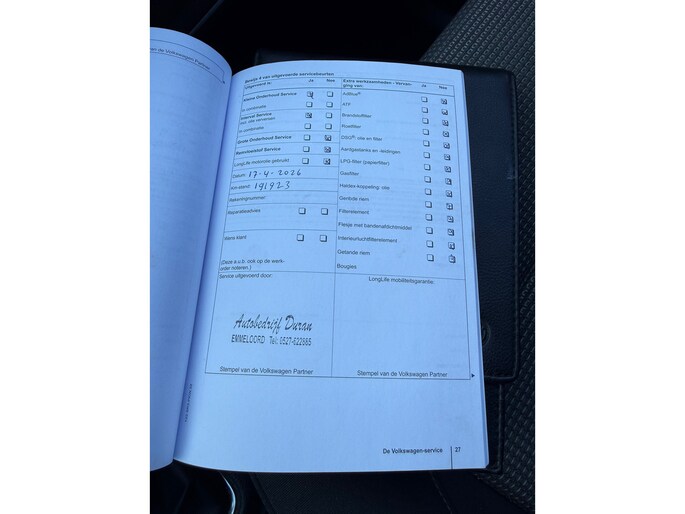 van de Volkswagen Partner
Bewijs 4 van uitgevoerde servicebeurten
Uitgevoerd is: Ja Nee
Kleine Onderhoud Service
In combinatie
Interval Service
incl. olie verversen
In combinatie
Grote Onderhoud Service
Remvloeistof Service
LongLife motorolie gebruikt
Datum: 17-4-2026
Km-stand: 191923
Rekeningnummer:
Reparatieadvies
Wens klant
(Deze a.u.b. ook op de werk-
order noteren.)
Service uitgevoerd door:
Autobedrijf Duran
EMMELOORD Tel: 0527-622865
Stempel van de Volkswagen Partner
Extra werkzaamheden - Vervan-
ging van: Ja Nee
AdBlue®
ATF
Brandstoffilter
Roetfilter
DSG®: olie en filter
Aardgastanks en -leidingen
LPG-filter (papierfilter)
Gasfilter
Haldex-koppeling: olie
Geribde riem
Filterelement
Flesje met bandenafdichtmiddel
Interieurluchtfilterelement
Getande riem
Bougies
LongLife mobiliteitsgarantie:
Stempel van de Volkswagen Partner
De Volkswagen-service 27